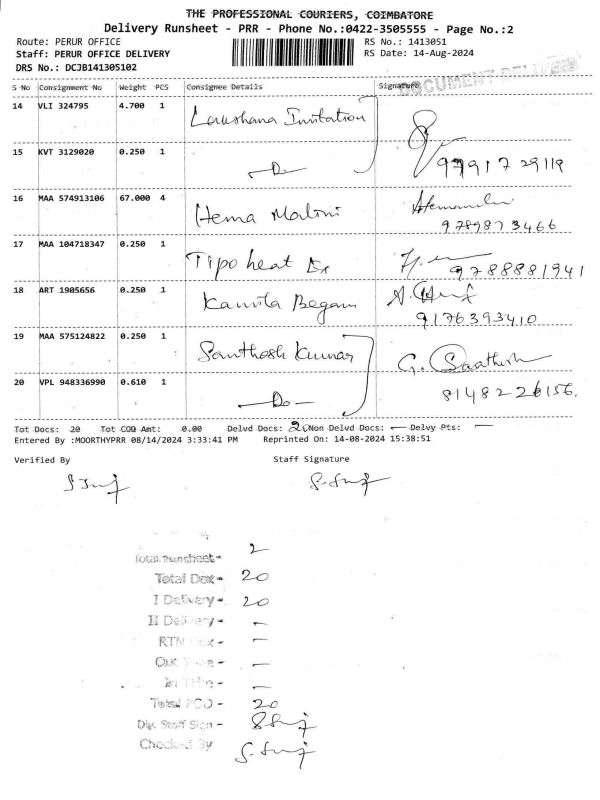 THE PROFESSIONAL COURIERS, COIMBATORE
Delivery Runsheet - PRR - Phone No.:0422-3505555 - Page No.:2
Route: PERUR OFFICE RS No.: 1413051
Staff: PERUR OFFICE DELIVERY RS Date: 14-Aug-2024
DRS No.: DCJB141305102
DOCUMENT DELIVERED
S No Consignment No Weight PCS Consignee Details Signature
14 VLI 324795 4.700 1 Invitation
15 KVT 3129020 0.250 1 —Do— 9791729119
16 MAA 574913106 67.000 4 Hema Malini 9789873466
17 MAA 104718347 0.250 1 Tipo heat 9788881941
18 ART 1905656 0.250 1 Kamila Begam 9176393410
19 MAA 575124822 0.250 1 Santhosh Kumar G. Santhosh
20 VPL 948336990 0.610 1 —Do— 8148226156.
Tot Docs: 20 Tot COD Amt: 0.00 Delvd Docs: 20 Non Delvd Docs: — Delvy Pts: —
Entered By :MOORTHYPRR 08/14/2024 3:33:41 PM Reprinted On: 14-08-2024 15:38:51
Verified By Staff Signature
Total Runsheet - 2
Total Dox - 20
I Delivery - 20
II Delivery - –
RTN - –
Out - –
In - –
Total POD - 20
Div. Staff Sign -
Checked By